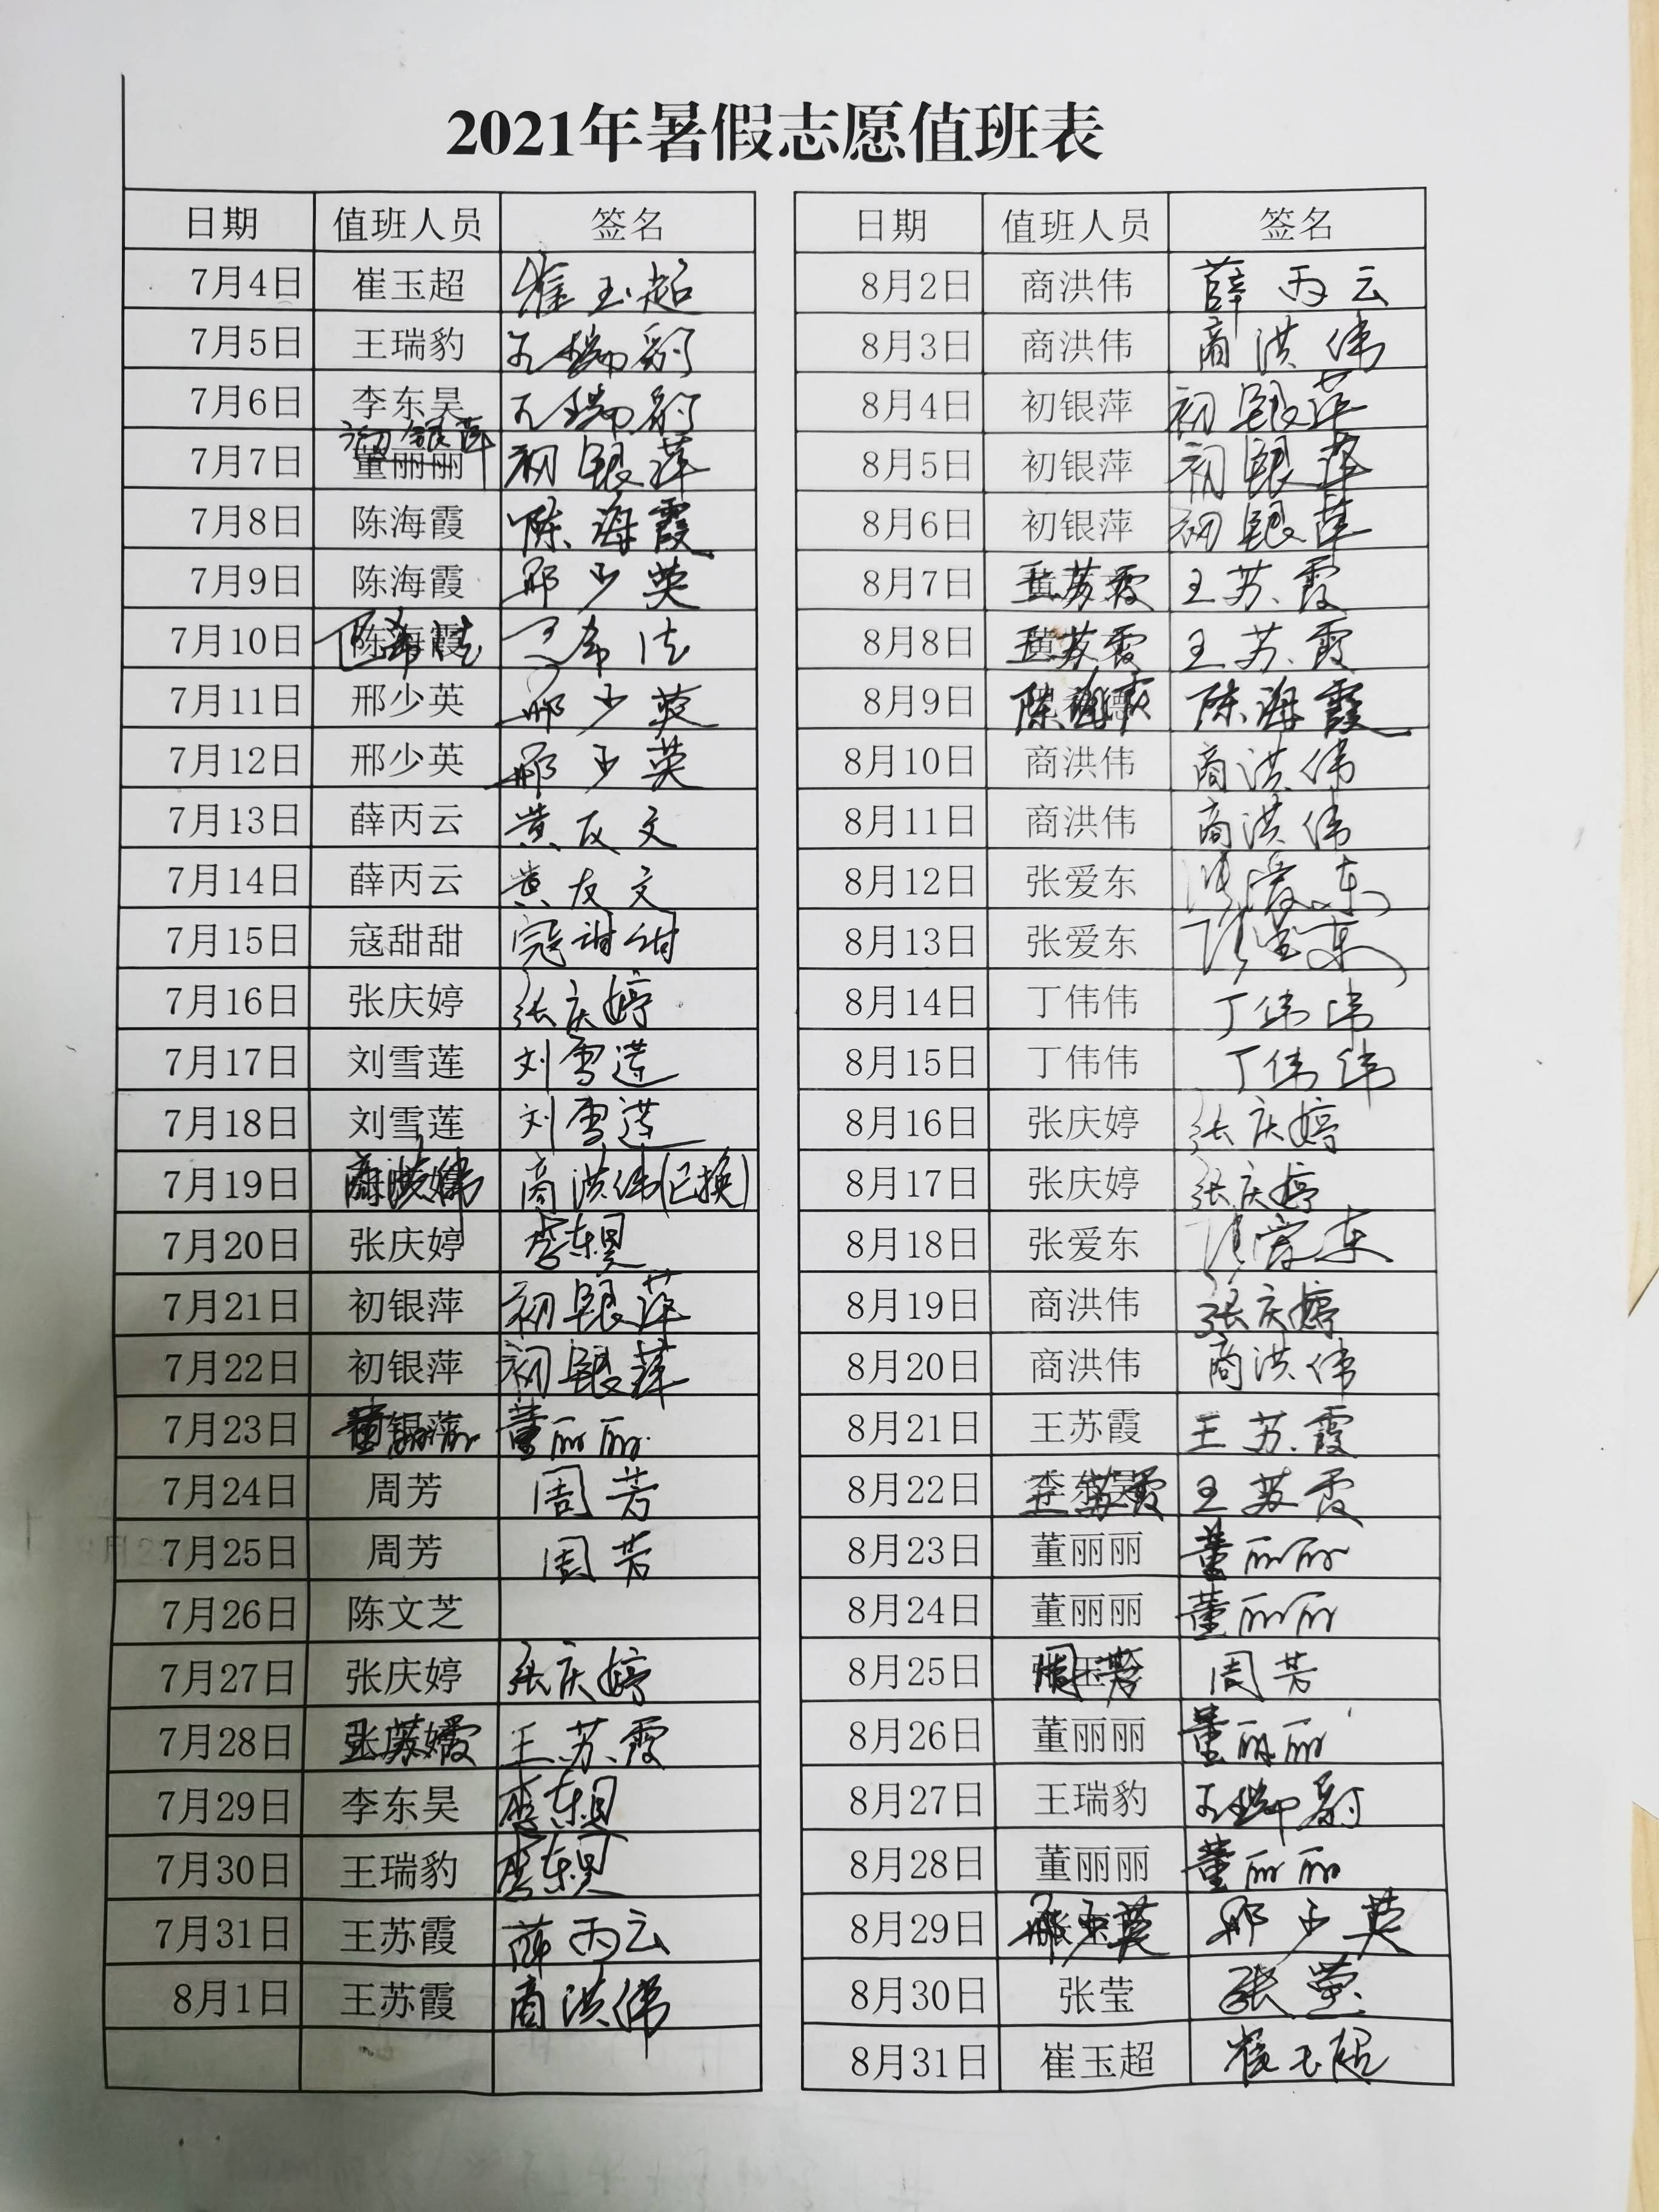 2021年暑假志愿值班表
日期 值班人员 签名
7月4日 崔玉超 崔玉超
7月5日 王瑞豹 王瑞豹
7月6日 李东昊 王瑞豹
初银萍
7月7日 董丽丽 初银萍
7月8日 陈海霞 陈海霞
7月9日 陈海霞 邢少英
7月10日 陈海霞
7月11日 邢少英 邢少英
7月12日 邢少英 邢少英
7月13日 薛丙云 黄友文
7月14日 薛丙云 黄友文
7月15日 寇甜甜 寇甜甜
7月16日 张庆婷 张庆婷
7月17日 刘雪莲 刘雪莲
7月18日 刘雪莲 刘雪莲
7月19日 商洪伟 商洪伟(已换)
7月20日 张庆婷 李东昊
7月21日 初银萍 初银萍
7月22日 初银萍 初银萍
7月23日 董丽丽 董丽丽
7月24日 周芳 周芳
7月25日 周芳 周芳
7月26日 陈文芝
7月27日 张庆婷 张庆婷
7月28日 王苏霞 王苏霞
7月29日 李东昊 李东昊
7月30日 王瑞豹 李东昊
7月31日 王苏霞 薛丙云
8月1日 王苏霞 商洪伟
日期 值班人员 签名
8月2日 商洪伟 薛丙云
8月3日 商洪伟 商洪伟
8月4日 初银萍 初银萍
8月5日 初银萍 初银萍
8月6日 初银萍 初银萍
8月7日 王苏霞 王苏霞
8月8日 王苏霞 王苏霞
8月9日 陈海霞 陈海霞
8月10日 商洪伟 商洪伟
8月11日 商洪伟 商洪伟
8月12日 张爱东 张爱东
8月13日 张爱东 张爱东
8月14日 丁伟伟 丁伟伟
8月15日 丁伟伟 丁伟伟
8月16日 张庆婷 张庆婷
8月17日 张庆婷 张庆婷
8月18日 张爱东 张爱东
8月19日 商洪伟 张庆婷
8月20日 商洪伟 商洪伟
8月21日 王苏霞 王苏霞
8月22日 王苏霞 王苏霞
8月23日 董丽丽 董丽丽
8月24日 董丽丽 董丽丽
8月25日 周芳 周芳
8月26日 董丽丽 董丽丽
8月27日 王瑞豹 王瑞豹
8月28日 董丽丽 董丽丽
8月29日 邢少英 邢少英
8月30日 张莹 张莹
8月31日 崔玉超 崔玉超